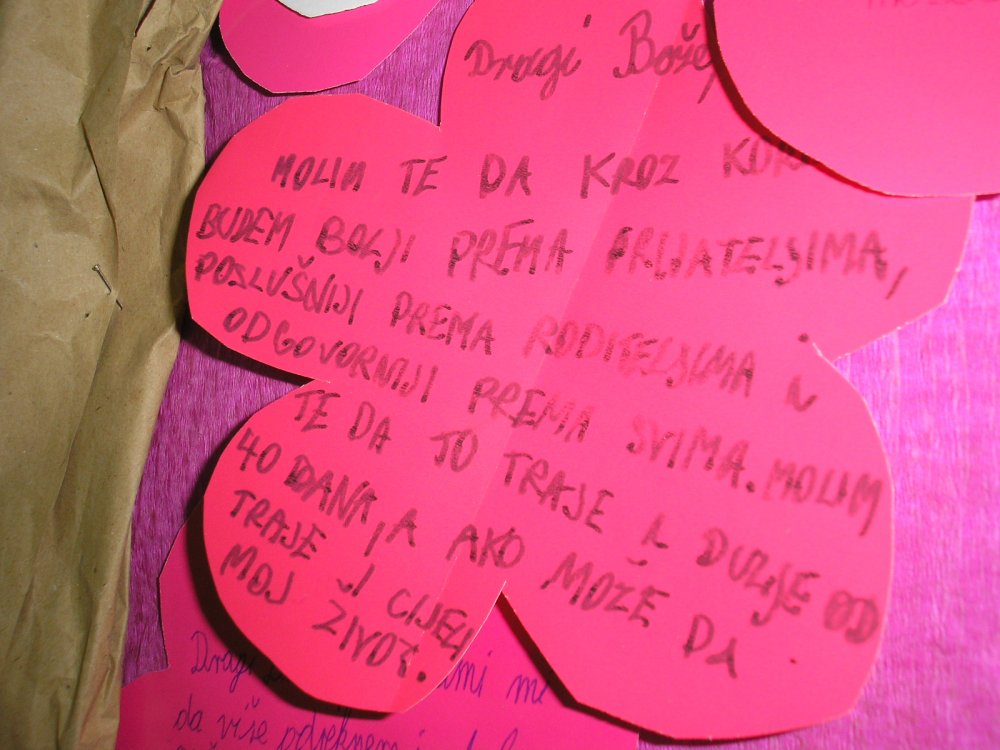 Dragi Bože,
MOLIM TE DA KROZ
BUDEM BOLJI PREMA PRIJATELJIMA,
POSLUŠNIJI PREMA RODITELJIMA I
ODGOVORNIJI PREMA SVIMA. MOLIM
TE DA TO TRAJE I DULJE OD
40 DANA, A AKO MOŽE DA
TRAJE I CIJELI
MOJ ŽIVOT.
Dragi
da više